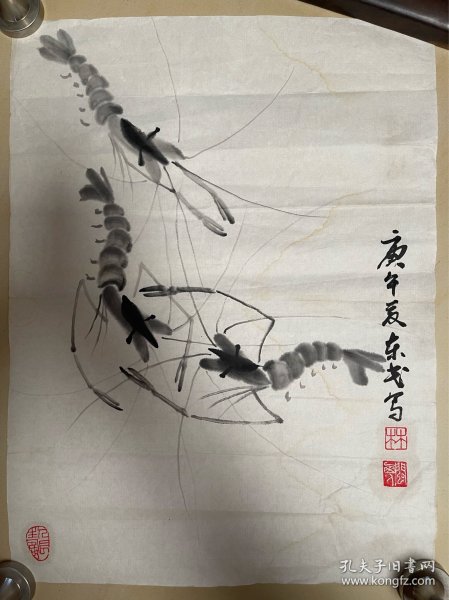 庚午夏东戈写
林
孔夫子旧书网
www.kongfz.com